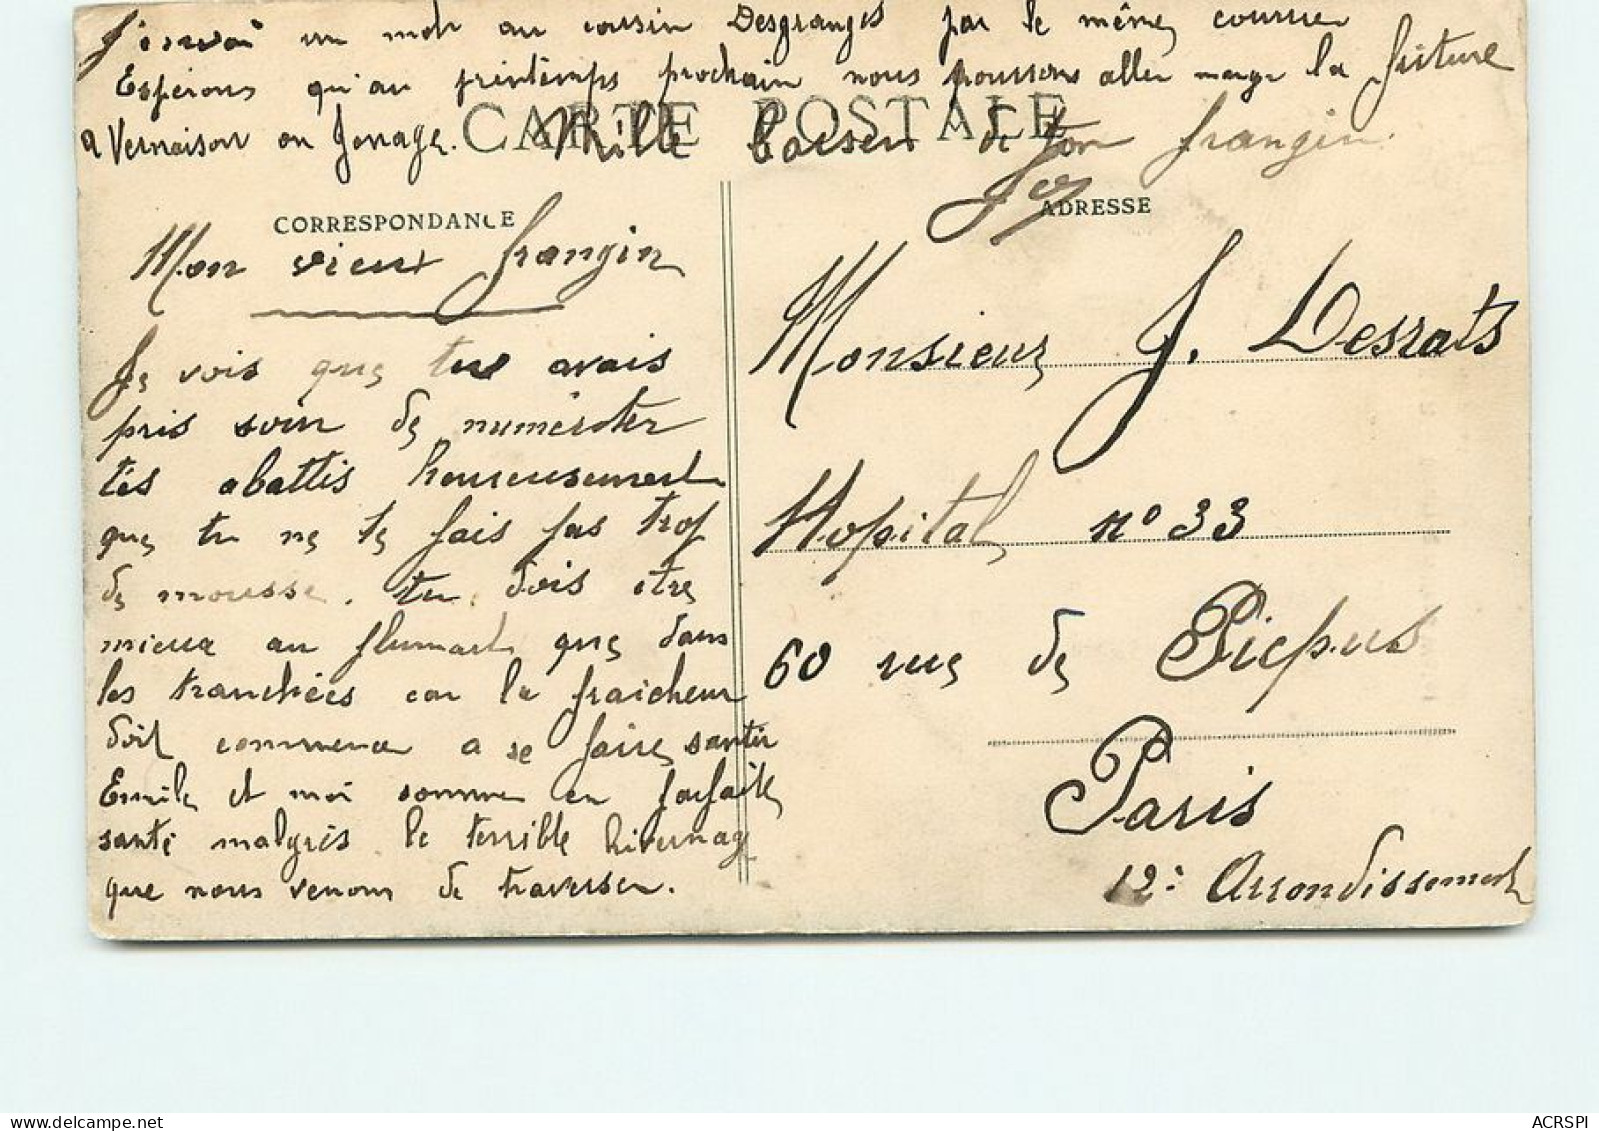 J'envoi un mot au cousin Desgranges par le même courrier
Espérons qu'au printemps prochain nous poussons aller mange la friture
a Vernaison ou Jonage. Mille baisers de ton frangin
CARTE POSTALE
CORRESPONDANCE
ADRESSE
Mon vieux frangin
Je vois que tu avais
pris soin de numéroter
tes abattis heureusement
que tu ne te fais pas trop
de mousse. tu dois être
mieux au plumard que dans
les tranchées car la fraicheur
doit commencer a se faire sentir
Emile et moi sommes en parfaite
santé malgrés le terrible hivernage
que nous venons de traverser.
Monsieur J. Desrats
Hopital n° 33
60 rue de Picpus
Paris
12e Arrondissement
ACRSPI